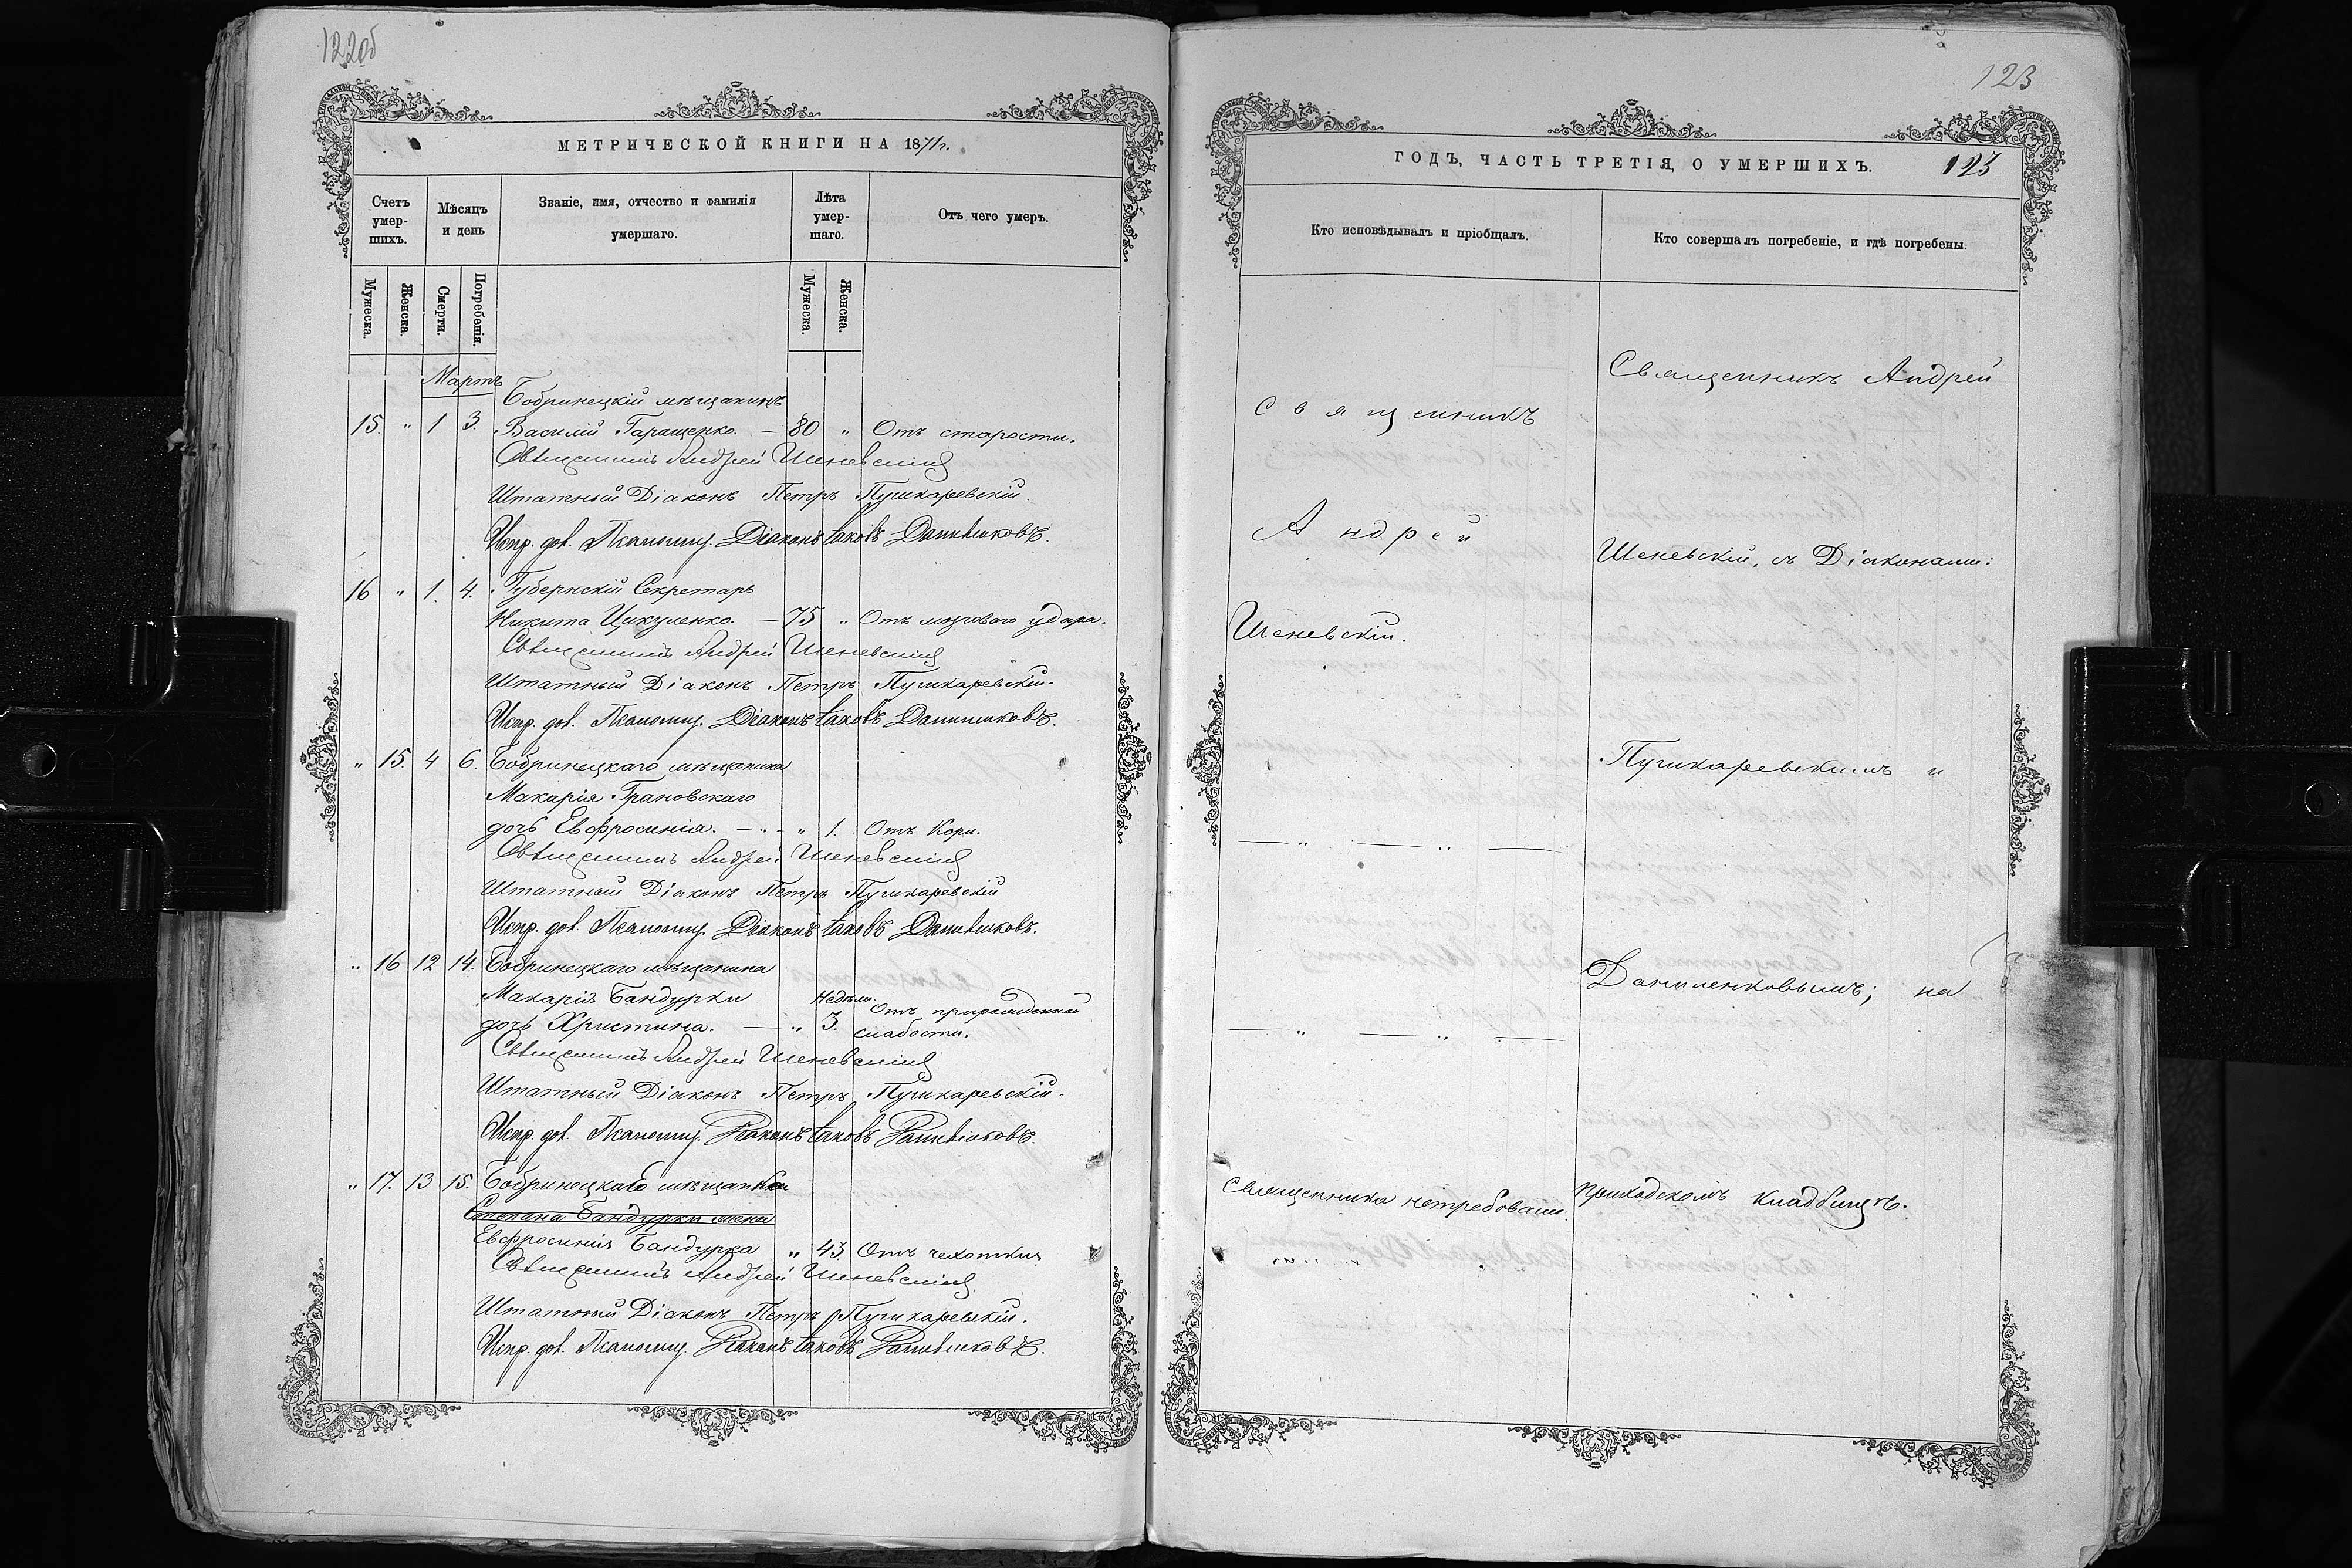 122об
МЕТРИЧЕСКОЙ КНИГИ НА 1871 г.
Счетъ умер-шихъ.
Мѣсяцъ и день
Званіе, имя, отчество и фамилія умершаго.
Лѣта умер-шаго.
Отъ чего умеръ.
Мужеска.
Женска.
Смерти.
Погребенія.
Мужеска.
Женска.
Мартъ
Бобринецкій мѣщанинъ
15. " 1 3. Василій Таращенко. — 80 " Отъ старости.
Священникъ Андрей Шеневскій
Штатный Діаконъ Петръ Пушкаревскій.
Испр. дол. Псаломщ. Діаконъ Іаковъ Даниленковъ.
16 " 1. 4. Губернскій Секретарь
Никита Цикуленко. — 75 " Отъ мозгового удара.
Священникъ Андрей Шеневскій
Штатный Діаконъ Петръ Пушкаревскій.
Испр. дол. Псаломщ. Діаконъ Іаковъ Даниленковъ.
" 15. 4 6. Бобринецкаго мѣщанина
Макарія Грановскаго
дочь Евфросинія. — " — " 1. Отъ Кори.
Священникъ Андрей Шеневскій
Штатный Діаконъ Петръ Пушкаревскій
Испр. дол. Псаломщ. Діаконъ Іаковъ Даниленковъ.
" 16 12 14. Бобринецкаго мѣщанина
Макарія Бандурки Недѣли. Отъ прирожденной
дочь Христина. — " 3. слабости.
Священникъ Андрей Шеневскій
Штатный Діаконъ Петръ Пушкаревскій.
Испр. дол. Псаломщ. Діаконъ Іаковъ Даниленковъ.
" 17. 13 15. Бобринецкая мѣщанка
Степана Бандурки жена
Евфросинія Бандурка " 43 Отъ чахотки.
Священникъ Андрей Шеневскій
Штатный Діаконъ Петръ Пушкаревскій.
Испр. дол. Псаломщ. Діаконъ Іаковъ Даниленковъ.
123
ГОДЪ, ЧАСТЬ ТРЕТІЯ, О УМЕРШИХЪ. 123
Кто исповѣдывалъ и пріобщалъ.
Кто совершалъ погребеніе, и гдѣ погребены.
Священникъ
Андрей
Шеневскій.
— " — " —
— " — " —
Священника нетребовали.
Священникъ Андрей
Шеневскій, съ Діаконами:
Пушкаревскимъ и
Даниленковымъ; на
приходскомъ кладбищѣ.